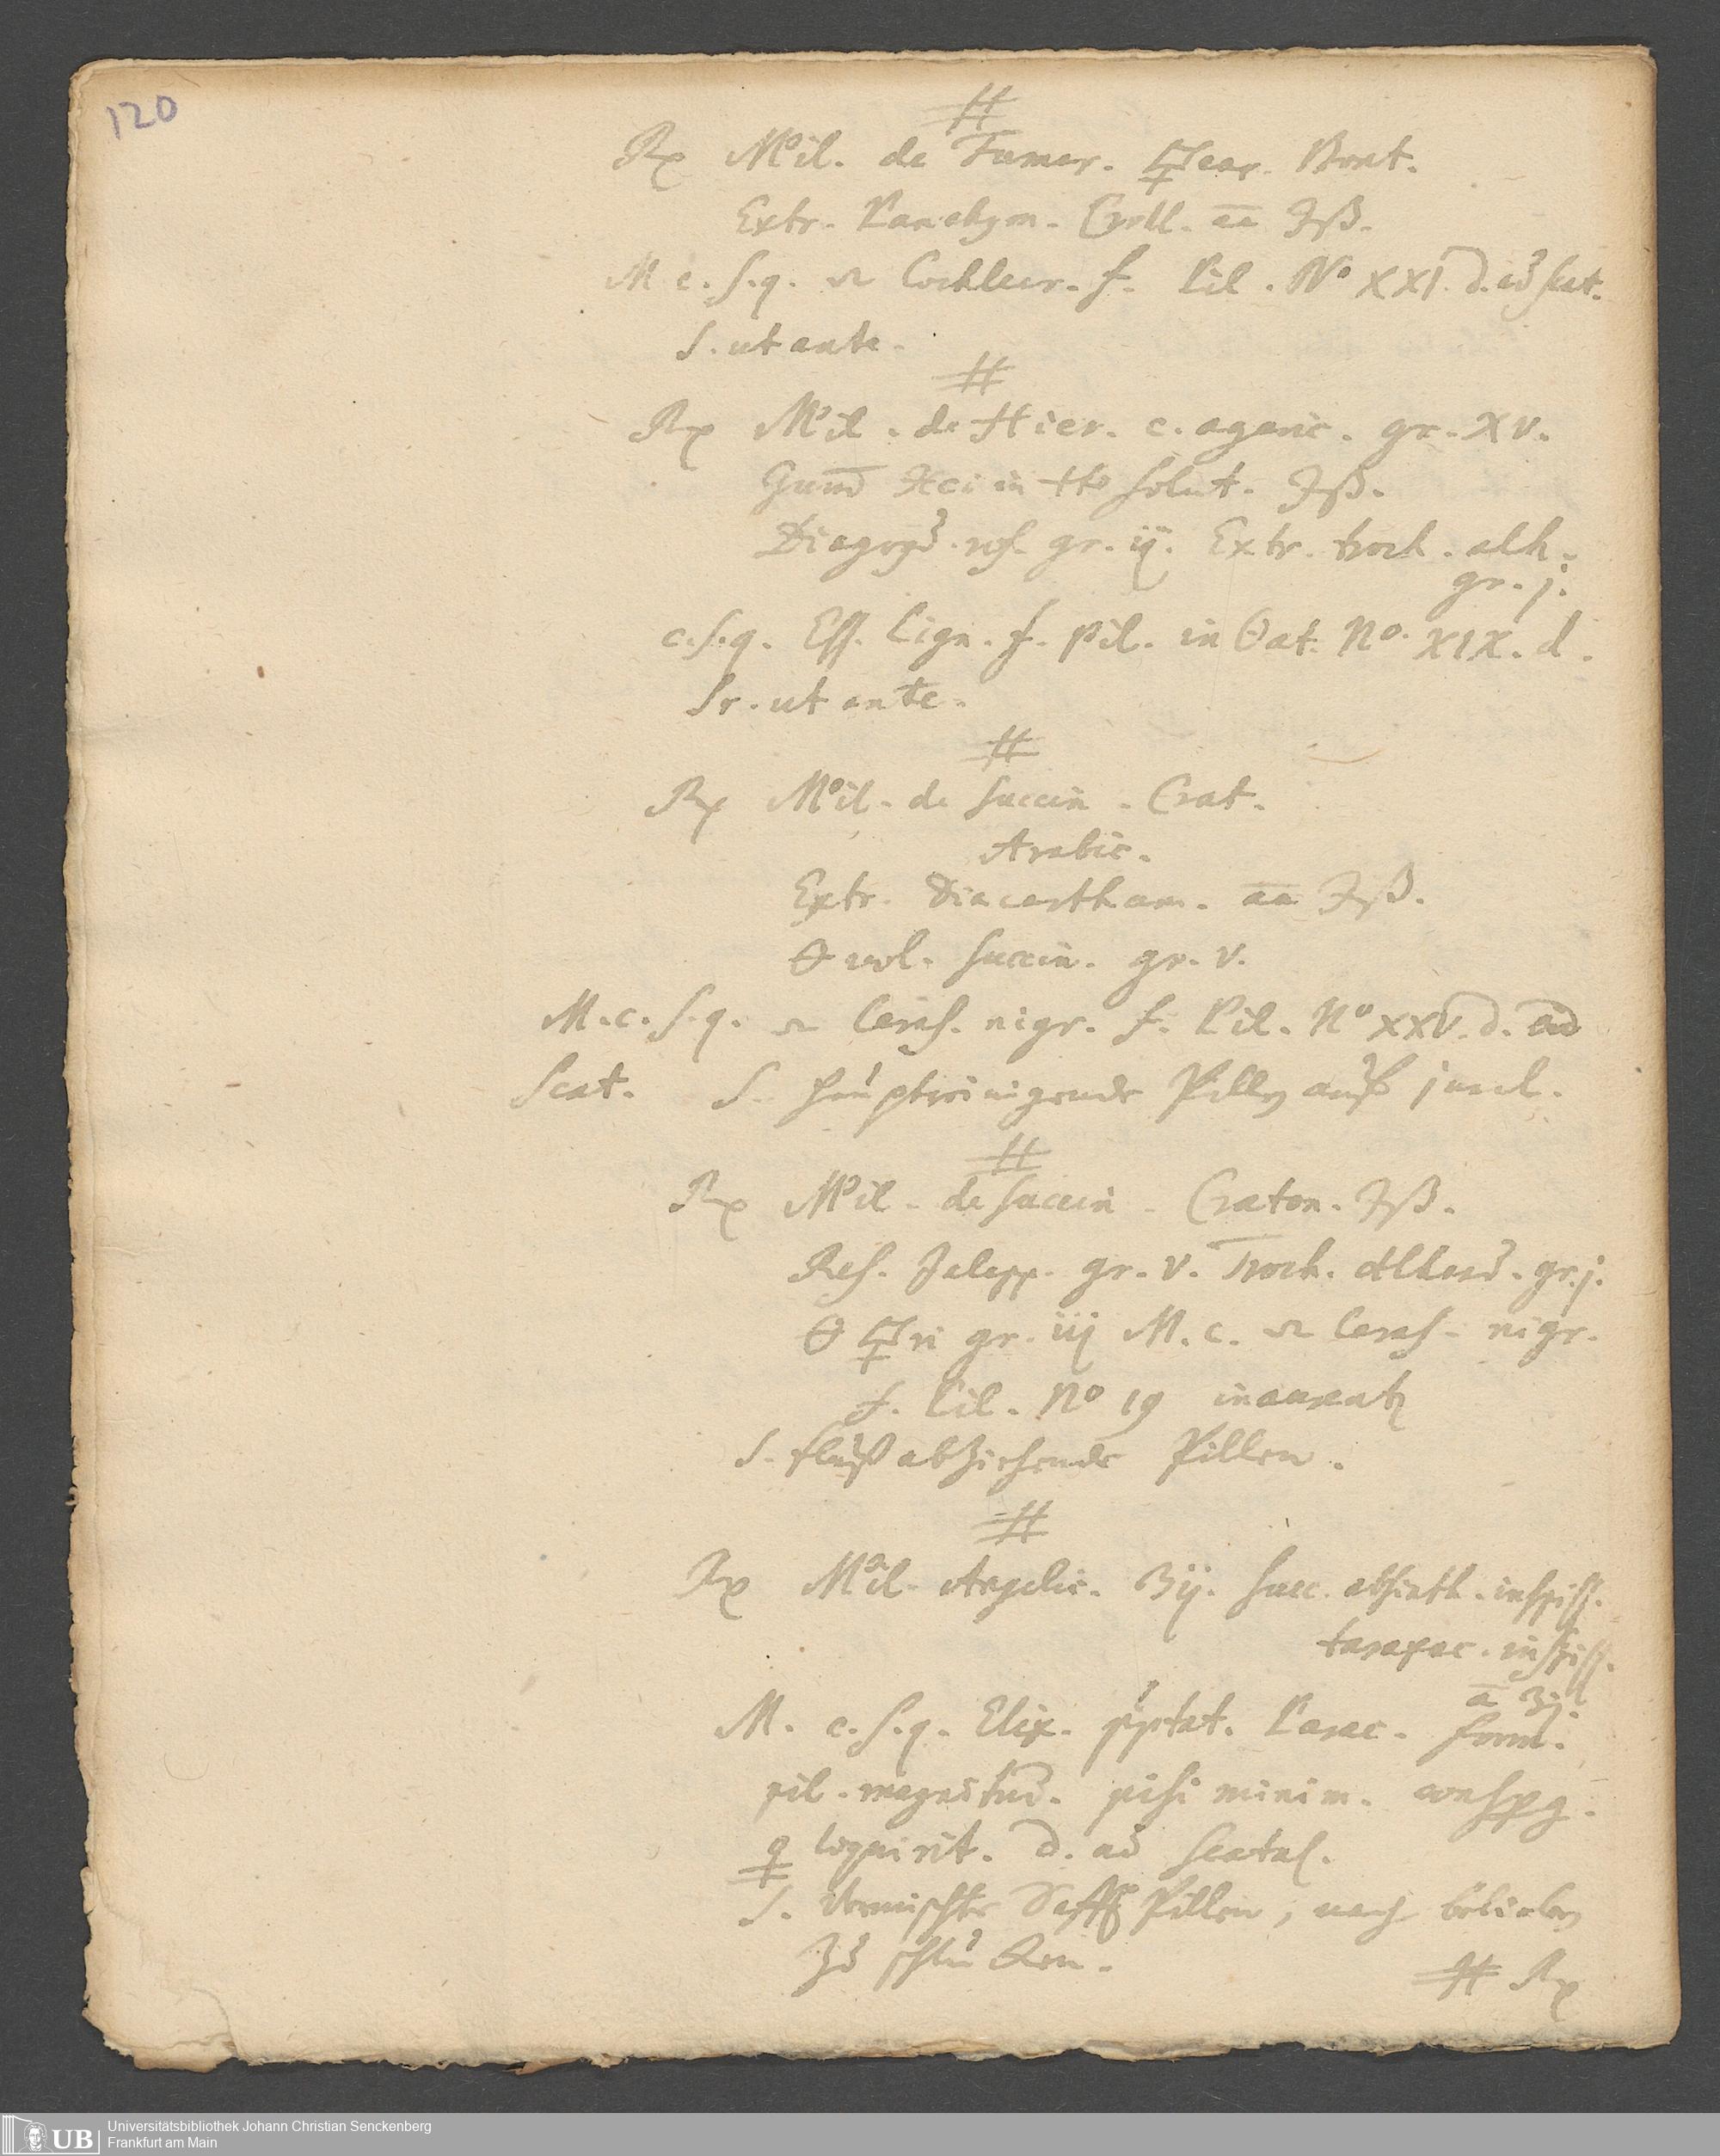 120
#
Rx M. Pil. de Fumar. 🜿ear. Bont.
Extr. Panchym. Croll. aa ℈ß.
M c. s. q. Cochlear. f. Pil. No XXI. d. ad scat.
S. ut ante.
#
Rx M. Pil. de Hier. c. agaric. gr. XV.
in solut. ℈ß.
Diagryd. gr. ij. Extr. troch. alh.
gr. j.
c. s. q. Ess. Lign. f. pil. in No. XIX. d.
S. ut ante.
#
Rx M. Pil. de Succin. Crat.
Arabic.
Extr. Diacartham. aa ℈ß.
🜔 vol. Succin. gr. V.
M. c. s. q. Ceras. nigr. f. Pil. No XXV. d. ad
Scat. S. hauptreinigende Pillen auff
#
Rx M. Pil. de Succin. Craton. ℈ß.
Res. Jalapp. gr. V. Troch. Alhand. gr. j.
🜔 🜿ri gr. iij M. c. Ceras. nigr.
f. Pil. No 19
S. fluß abziehende Pillen.
#
Rx M. Pil. Angelic. ʒij. Succ. absinth. inspiss.
taraxac. inspiss.
a ʒj.
M. c. s. q. Elix. pptat. Parac. form.
pil. magnitud. pisi minim. consperg.
liquirit. d. ad scatul.
S. Vermischte Safft Pillen, nach belieben
zu schlucken.
# Rx
UB Universitätsbibliothek Johann Christian Senckenberg
Frankfurt am Main